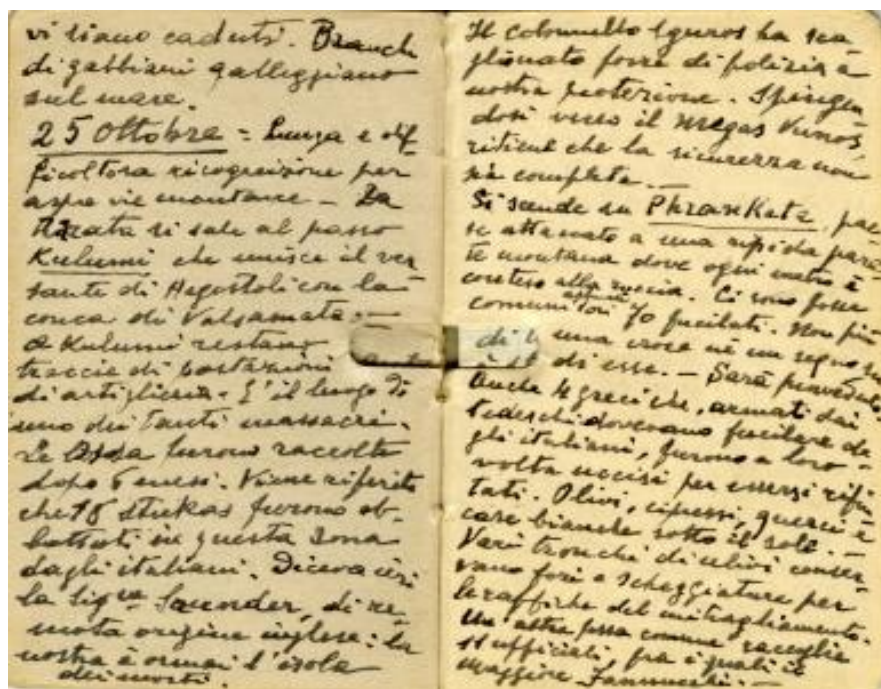 vi siano caduti. Branchi
di gabbiani galleggiano
sul mare.
25 Ottobre = Lunga e dif-
ficoltosa ricognizione per
aspre vie montane - La
strada si sale al passo
Kulumi che unisce il ver
sante di Argostoli con la
conca di Valsamata. -
A Kulumi restano
traccie di postazioni
di artiglieria - È il luogo di
uno dei tanti massacri.
Le Ossa furono raccolte
dopo 6 mesi. Viene riferito
che 18 stukas furono ab-
battuti in questa zona
dagli italiani. Diceva ieri
la sigra Saunder, di re-
mota origine inglese: la
nostra è ormai l'isola
dei morti.
Il colonnello Iguros ha sca
glionato forze di polizia a
nostra protezione. Spingen
dosi verso il Megas Vunos,
ritiene che la sicurezza non
sia completa. -
Si scende su Phrankata, pae
se attaccato a una ripida pare-
te montana dove ogni metro è
conteso alla roccia. Ci sono fosse
comuni 70 fucilati. Non più
di una croce nè un segno su
di esse. - Sarà provveduto.
Anche 4 greci che, armati dai
tedeschi dovevano fucilare
gli italiani, furono a loro
volta uccisi per essersi rifiu
tati. Olivi, cipressi, querci e
case bianche sotto il sole. -
Vari tronchi di ulivi conser-
vano fori e scheggiature per
le raffiche del mitragliamento.
Un'altra fossa comune raccoglie
11 ufficiali, fra i quali il
maggiore Fannucchi. -